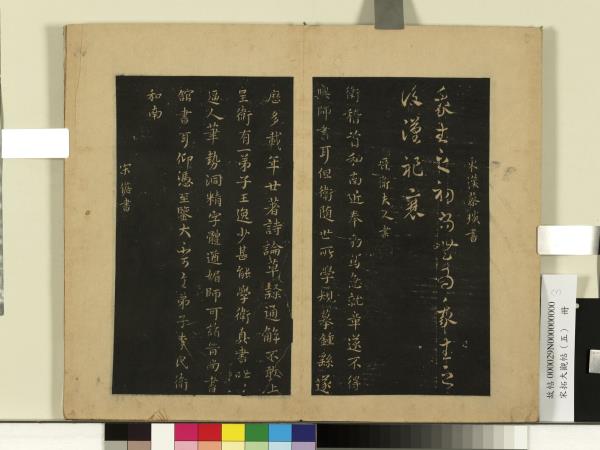 東漢蔡琰書
我生之初尚無為我生之
後漢祚衰
晉衛夫人書
衛稽首和南近奉勑寫急就章遂不得
與師書耳但衛隨世所學規摹鍾繇遂
歷多載年廿著詩論草隸通解不敢上
呈衛有一弟子王逸少甚能學衛真書咄咄
逼人筆勢洞精字體遒媚師可詣晉尚書
館書耳仰憑至鑒大不可言弟子李氏衛
和南
宋儋書
故帖000029N000000000
宋拓大觀帖（五） 冊
3